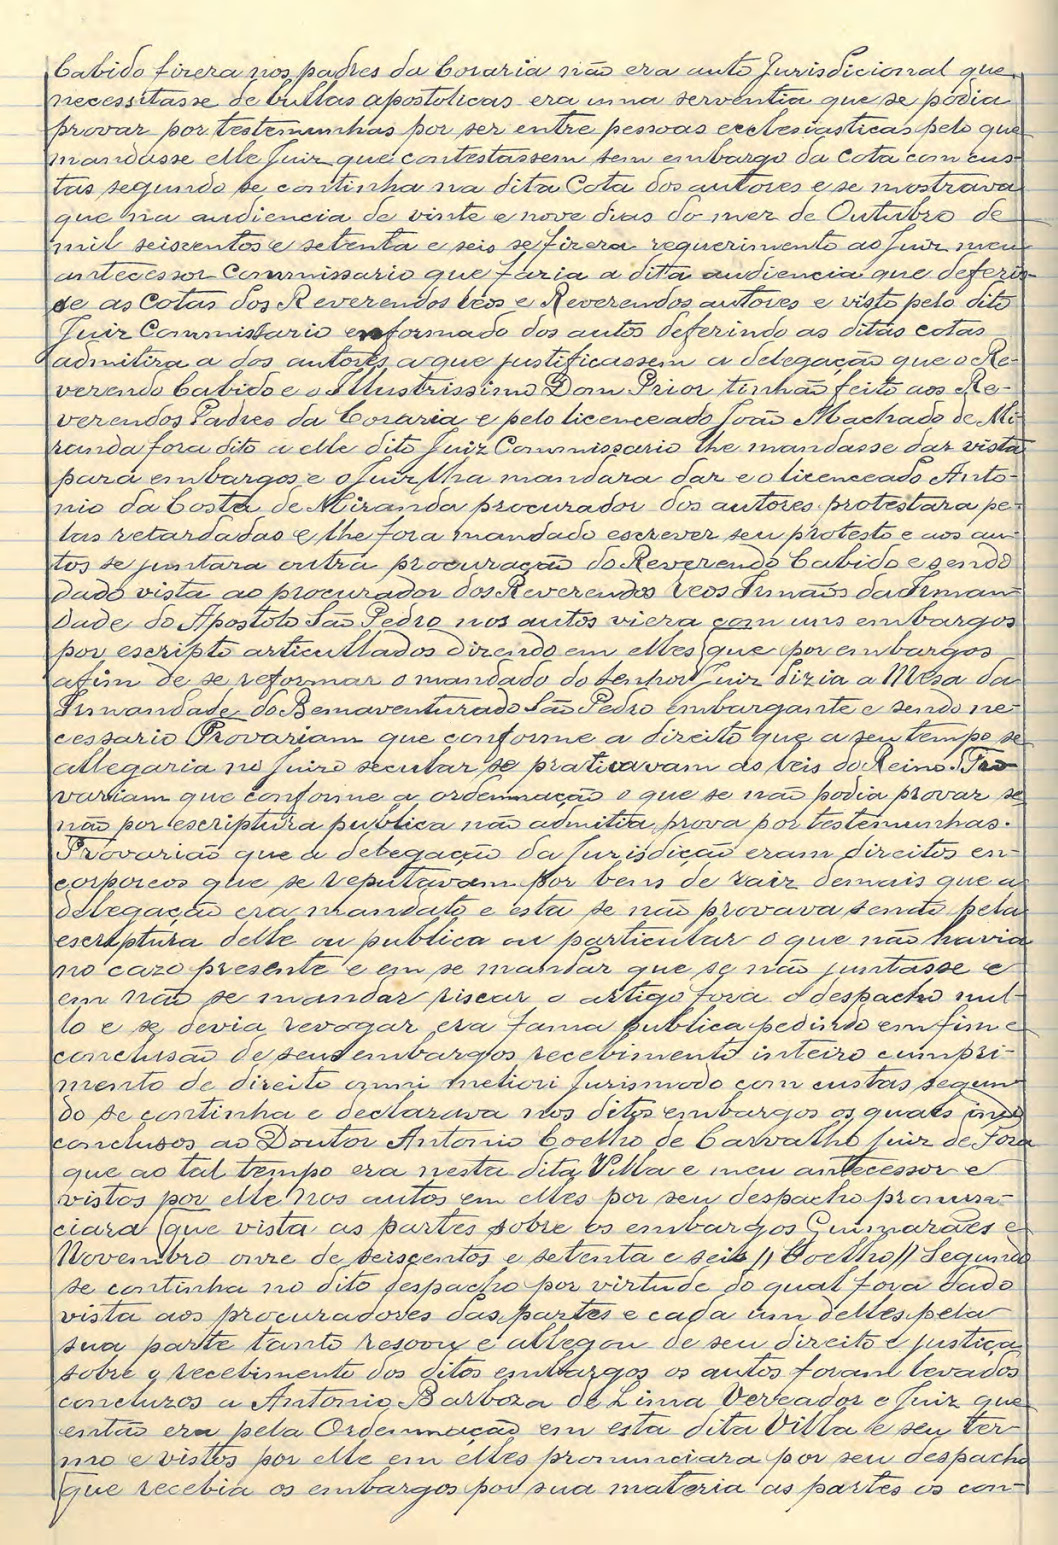 Cabido fizera nos padres da Coraria não era auto Jurisdicional que
necessitasse de bullas apostolicas era uma serventia que se podia
provar por testemunhas por ser entre pessoas ecclesiasticas pelo que
mandasse elle Juiz que contestassem sem embargo da cota com cus-
tas segundo se continha na dita Cota dos autores e se mostrava
que na audiencia de vinte e nove dias do mez de Outubro de
mil seiscentos e setenta e seis se fizera requerimento ao Juiz meu
antecessor Commissario que fazia a dita audiencia que deferis-
se as Cotas dos Reverendos reos e Reverendos autores e visto pelo dito
Juiz Commissario enformado dos autos deferindo as ditas cotas
admitira a dos autores, a que justificassem a delegação que o Re-
verendo Cabido e o Illustrissimo Dom Prior tinhão feito aos Re-
verendos Padres da Coraria e pelo licenceado João Machado de Mi-
randa fora dito a elle dito Juiz Commissario lhe mandasse dar vista
para embargos e o Juiz lha mandara dar e o licenceado Anto-
nio da Costa de Miranda procurador dos autores protestara pe-
las retardadas e lhe fora mandado escrever seu protesto e aos au-
tos se juntara outra procuração do Reverendo Cabido e sendo
dado vista ao procurador dos Reverendos reos Irmãos da Irman-
dade do Apostolo São Pedro nos autos viera com uns embargos
por escripto articullados dizendo em elles (que por embargos
afim de se reformar o mandado do senhor Juiz dizia a Mesa da
Irmandade do Bemaventurado São Pedro embargante e sendo ne-
cessario Provariam que conforme a direito que a seu tempo se
allegaria no Juizo secular se praticavam as leis do Reino. Pro-
variam que conforme a ordennação o que se não podia provar se
não por escriptura publica não admitia prova por testemunhas.
Provarião que a delegação da Jurisdição eram direitos en-
corporeos que se reputavam por bens de raiz demais que a
delegação era mandato e esta se não provava senão pela
escriptura delle ou publica ou particular o que não havia
no cazo presente e em se mandar que se não juntasse e
em não se mandar riscar o artigo fora o despacho nul-
lo e se devia revogar era fama publica pedindo em fim e
conclusão de seus embargos recebimento inteiro cumpri-
mento de direito omni meliori Jurismodo com custas segun-
do se continha e declarava nos ditos embargos os quaes indo
conclusos ao Doutor Antonio Coelho de Carvalho Juiz de Fora
que ao tal tempo era nesta dita Villa e meu antecessor e
vistos por elle nos autos em elles por seu despacho pronun-
ciara (que vista as partes sobre os embargos Guimarães e
Novembro onze de seiscentos e setenta e seis // Coelho // Segundo
se continha no dito despacho por virtude do qual fora dado
vista aos procuradores das partes e cada um delles pela
sua parte tanto resoou e allegou de seu direito e justiça
sobre o recebimento dos ditos embargos os autos foram levados
concluzos a Antonio Barboza de Lima Vereador e Juiz que
então era pela Ordennação em esta dita Villa e seu ter-
mo e vistos por elle em elles pronunciara por seu despacho
(que recebia os embargos por sua materia as partes os con-